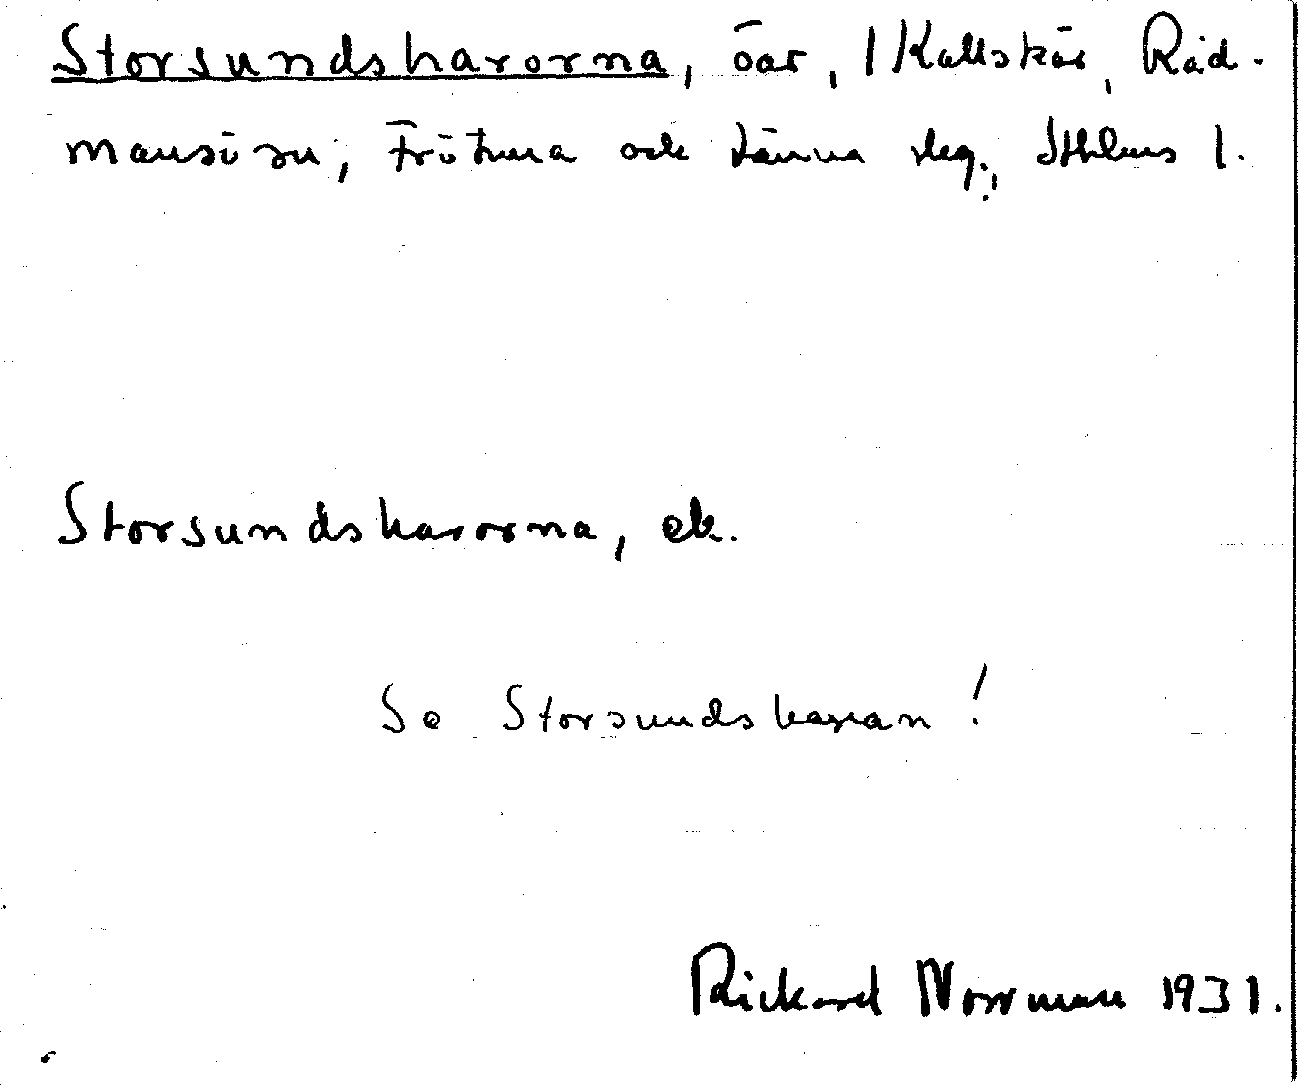 Storsundshararna, öar, 1 Kallskär, Råd-
mansö sn, Frötuna och Länna skg., Sthlms l.
Storsundshararna, ek.
Se Storsundsharan!
Rickard Norrman 1931.